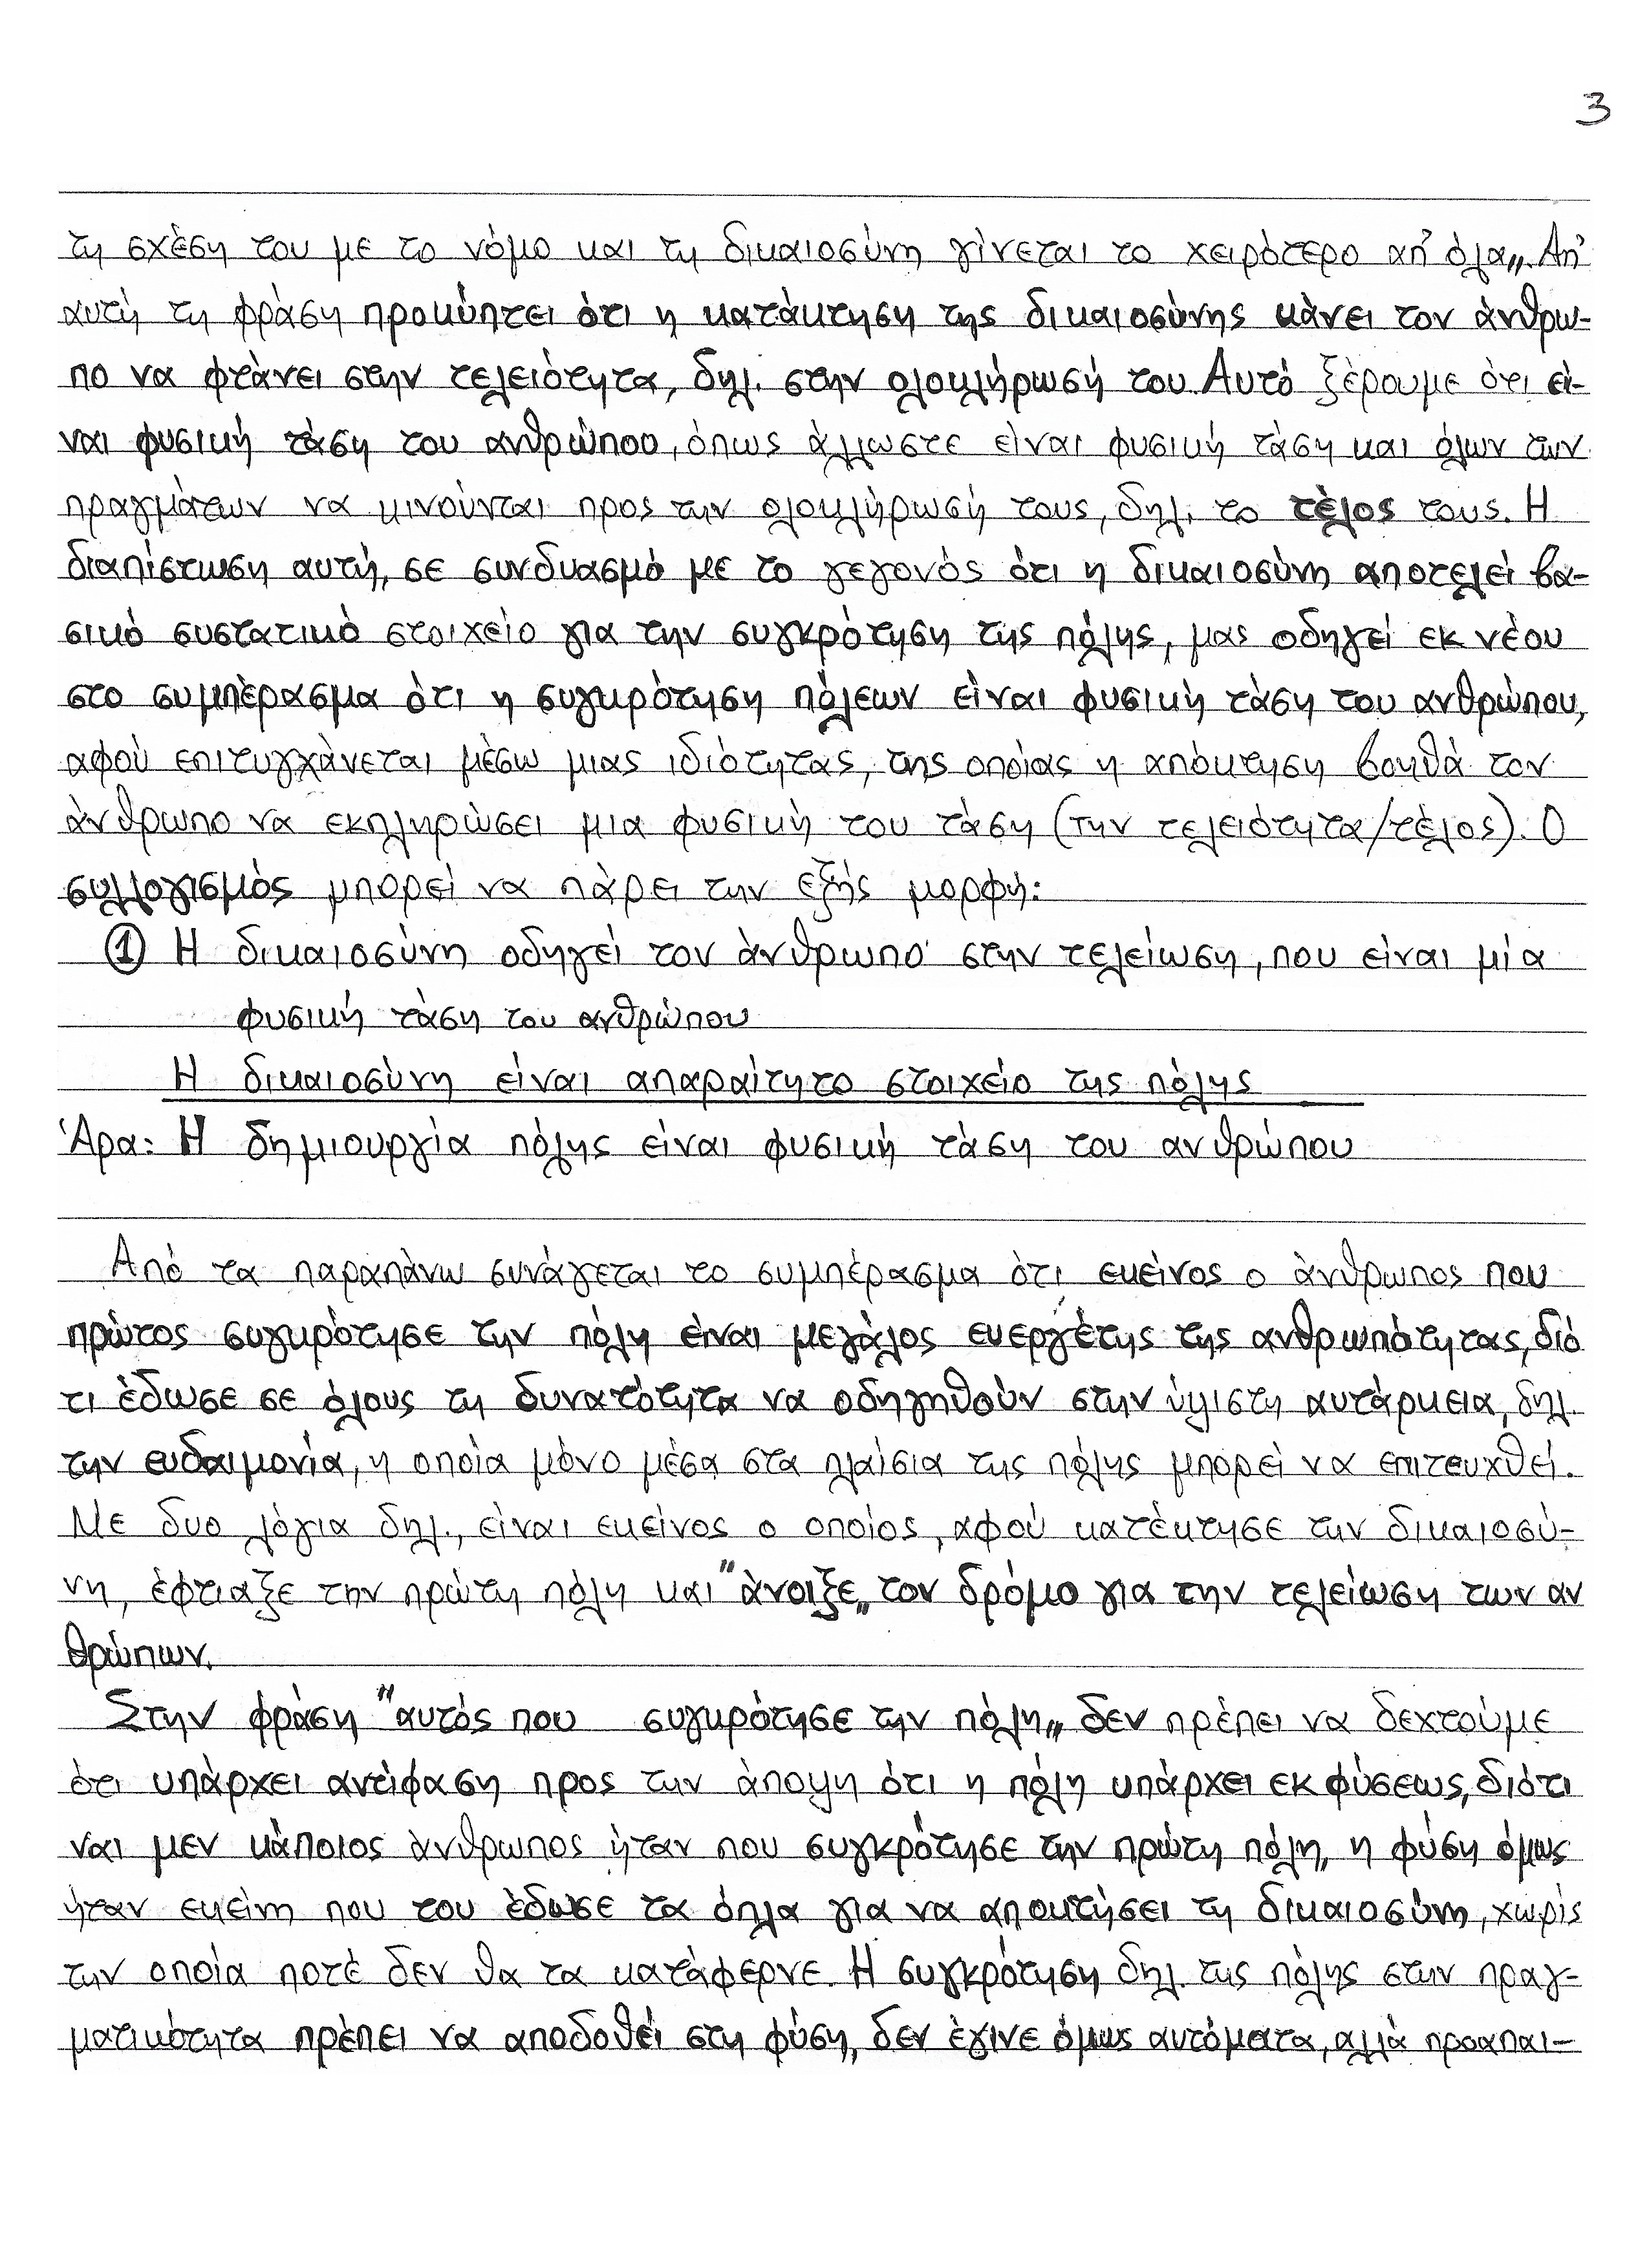 3
τη σχέση του με το νόμο και τη δικαιοσύνη γίνεται το χειρότερο απ' όλα„. Απ'
αυτή τη φράση προκύπτει ότι η κατάκτηση της δικαιοσύνης κάνει τον άνθρω-
πο να φτάνει στην τελειότητα, δηλ. στην ολοκλήρωσή του. Αυτό ξέρουμε ότι εί-
ναι φυσική τάση του ανθρώπου, όπως άλλωστε είναι φυσική τάση και όλων των
πραγμάτων να κινούνται προς την ολοκλήρωσή τους, δηλ. το τέλος τους. Η
διαπίστωση αυτή, σε συνδυασμό με το γεγονός ότι η δικαιοσύνη αποτελεί βα-
σικό συστατικό στοιχείο για την συγκρότηση της πόλης, μας οδηγεί εκ νέου
στο συμπέρασμα ότι η συγκρότηση πόλεων είναι φυσική τάση του ανθρώπου,
αφού επιτυγχάνεται μέσω μιας ιδιότητας, της οποίας η απόκτηση βοηθά τον
άνθρωπο να εκπληρώσει μια φυσική του τάση (την τελειότητα/τέλος). Ο
συλλογισμός μπορεί να πάρει την εξής μορφή:
① Η δικαιοσύνη οδηγεί τον άνθρωπο στην τελείωση, που είναι μία
φυσική τάση του ανθρώπου
Η δικαιοσύνη είναι απαραίτητο στοιχείο της πόλης
Άρα: Η δημιουργία πόλης είναι φυσική τάση του ανθρώπου
Από τα παραπάνω συνάγεται το συμπέρασμα ότι εκείνος ο άνθρωπος που
πρώτος συγκρότησε την πόλη είναι μεγάλος ευεργέτης της ανθρωπότητας, διό
τι έδωσε σε όλους τη δυνατότητα να οδηγηθούν στην ύψιστη αυτάρκεια, δηλ.
την ευδαιμονία, η οποία μόνο μέσα στα πλαίσια της πόλης μπορεί να επιτευχθεί.
Με δυο λόγια δηλ., είναι εκείνος ο οποίος, αφού κατέκτησε την δικαιοσύ-
νη, έφτιαξε την πρώτη πόλη και "άνοιξε„ τον δρόμο για την τελείωση των αν
θρώπων.
Στην φράση "αυτός που συγκρότησε την πόλη„ δεν πρέπει να δεχτούμε
ότι υπάρχει αντίφαση προς την άποψη ότι η πόλη υπάρχει εκ φύσεως, διότι
ναι μεν κάποιος άνθρωπος ήταν που συγκρότησε την πρώτη πόλη, η φύση όμως
ήταν εκείνη που του έδωσε τα όπλα για να αποκτήσει τη δικαιοσύνη, χωρίς
την οποία ποτέ δεν θα τα κατάφερνε. Η συγκρότηση δηλ. της πόλης στην πραγ-
ματικότητα πρέπει να αποδοθεί στη φύση, δεν έγινε όμως αυτόματα, αλλά προαπαι-